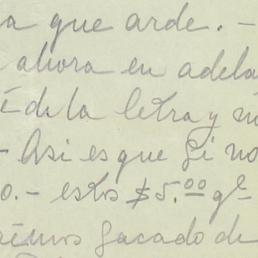 a que arde. -
ahora en adela
é de la letra y n
- Asi es que si no
o. - estos $5.00 qe
sacado de